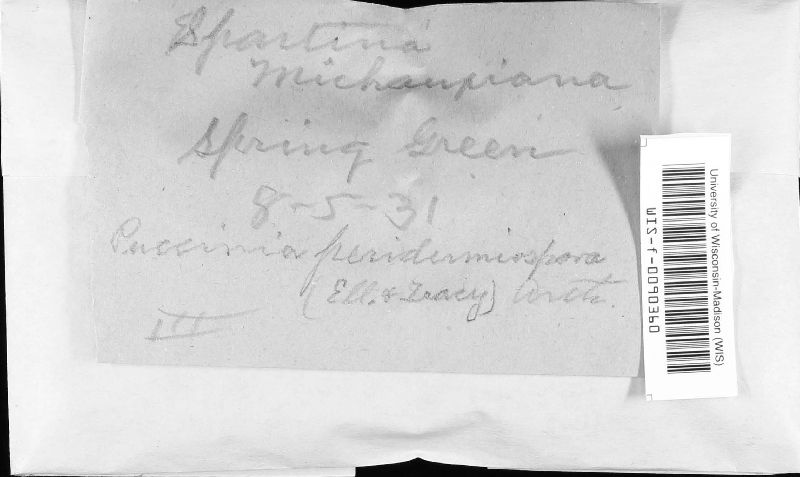 Spartina
Michauxiana
Spring Green
8-5-31
Puccinia peridermiospora
(Ell. & Tracy) Arth.
III
University of Wisconsin-Madison (WIS)
WIS-f-0090360